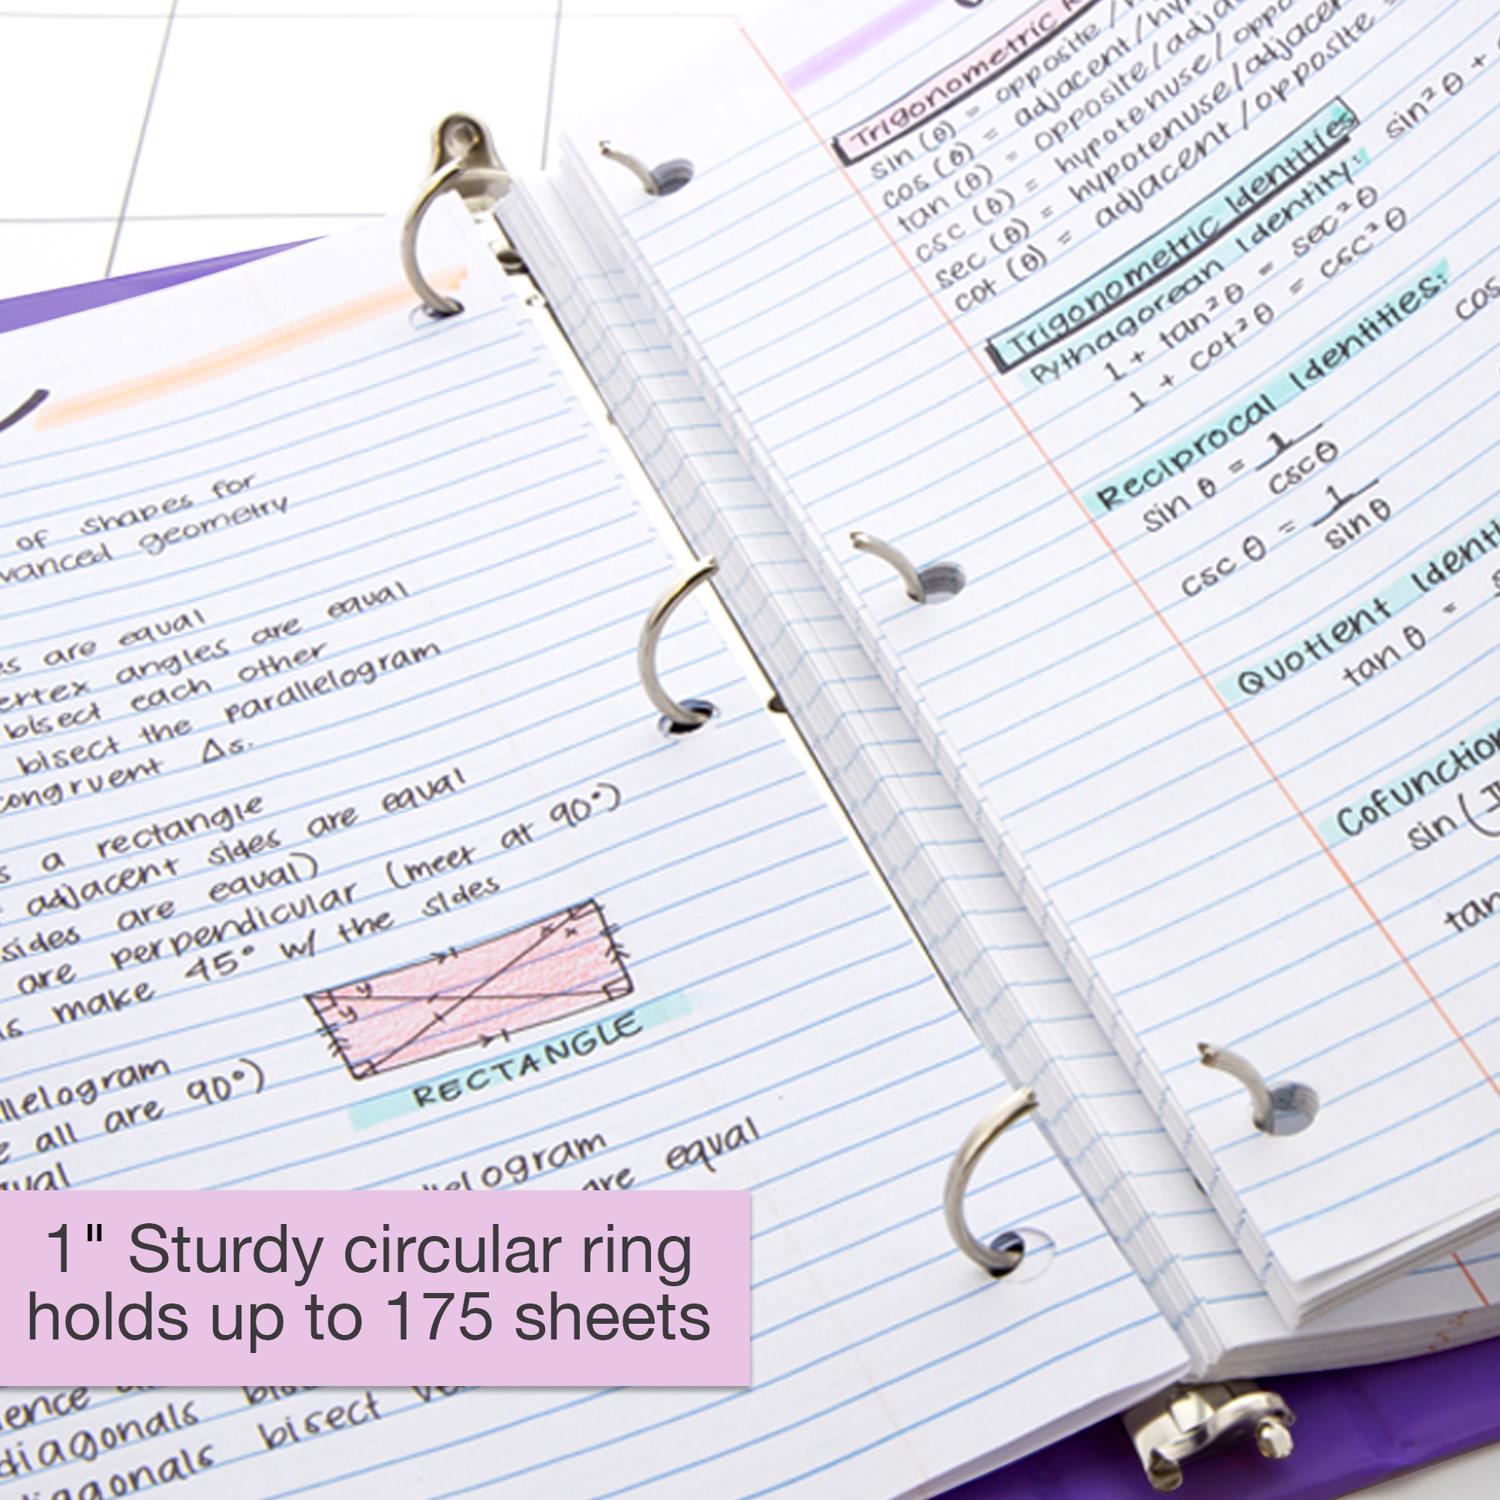 of shapes for
vanced geometry
es are equal
ertex angles are equal
bisect each other
bisect the parallelogram
congruent Δs.
s a rectangle
adjacent sides are equal
sides are equal)
are perpendicular (meet at 90°)
s make 45° w/ the sides
llelogram
e all are 90°)
RECTANGLE
llelogram
are equal
1" Sturdy circular ring
holds up to 175 sheets
ience
diagonals
diagonals bisect
Trigonometric
sin (θ) = opposite /
cos (θ) = adjacent/hy
tan (θ) = opposite/adja
csc (θ) = hypotenuse/oppo
sec (θ) = hypotenuse/adjacen
cot (θ) = adjacent/opposite
Trigonometric Identities
Pythagorean Identity: sin²θ +
1 + tan²θ = sec²θ
1 + cot²θ = csc²θ
Reciprocal Identities:
sin θ = 1/cscθ
cos
csc θ = 1/sinθ
Quotient Identi
tan θ =
Cofunction
sin (
tan